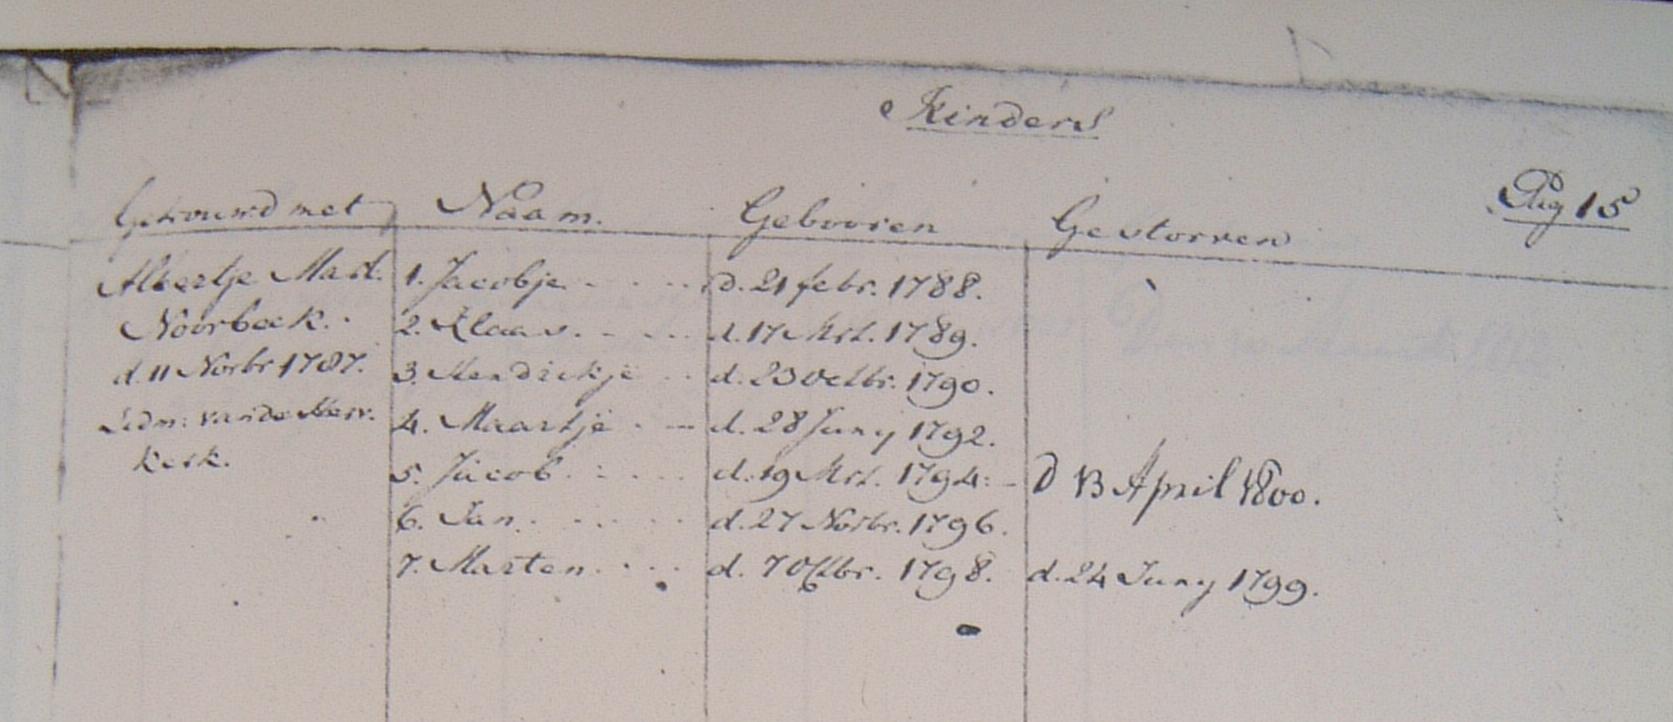 Kinders
Pag 15
Getrouwd met Naam. Gebooren Gestorven
Albertje Mart. 1. Jacobje d. 21 febr. 1788.
Noorbeek. 2. Klaas. d. 17 Mrt. 1789.
d. 11 Novbr 1787. 3. Hendrikje d. 23 Octbr. 1790.
Ledm: van de Herv. 4. Maartje d. 28 Juny 1792.
Kerk. 5. Jacob. d. 19 Mrt. 1794: D 13 April 1800.
6. Jan. d. 27 Novbr. 1796.
7. Marten. d. 7 Octbr. 1798. d. 24 Juny 1799.